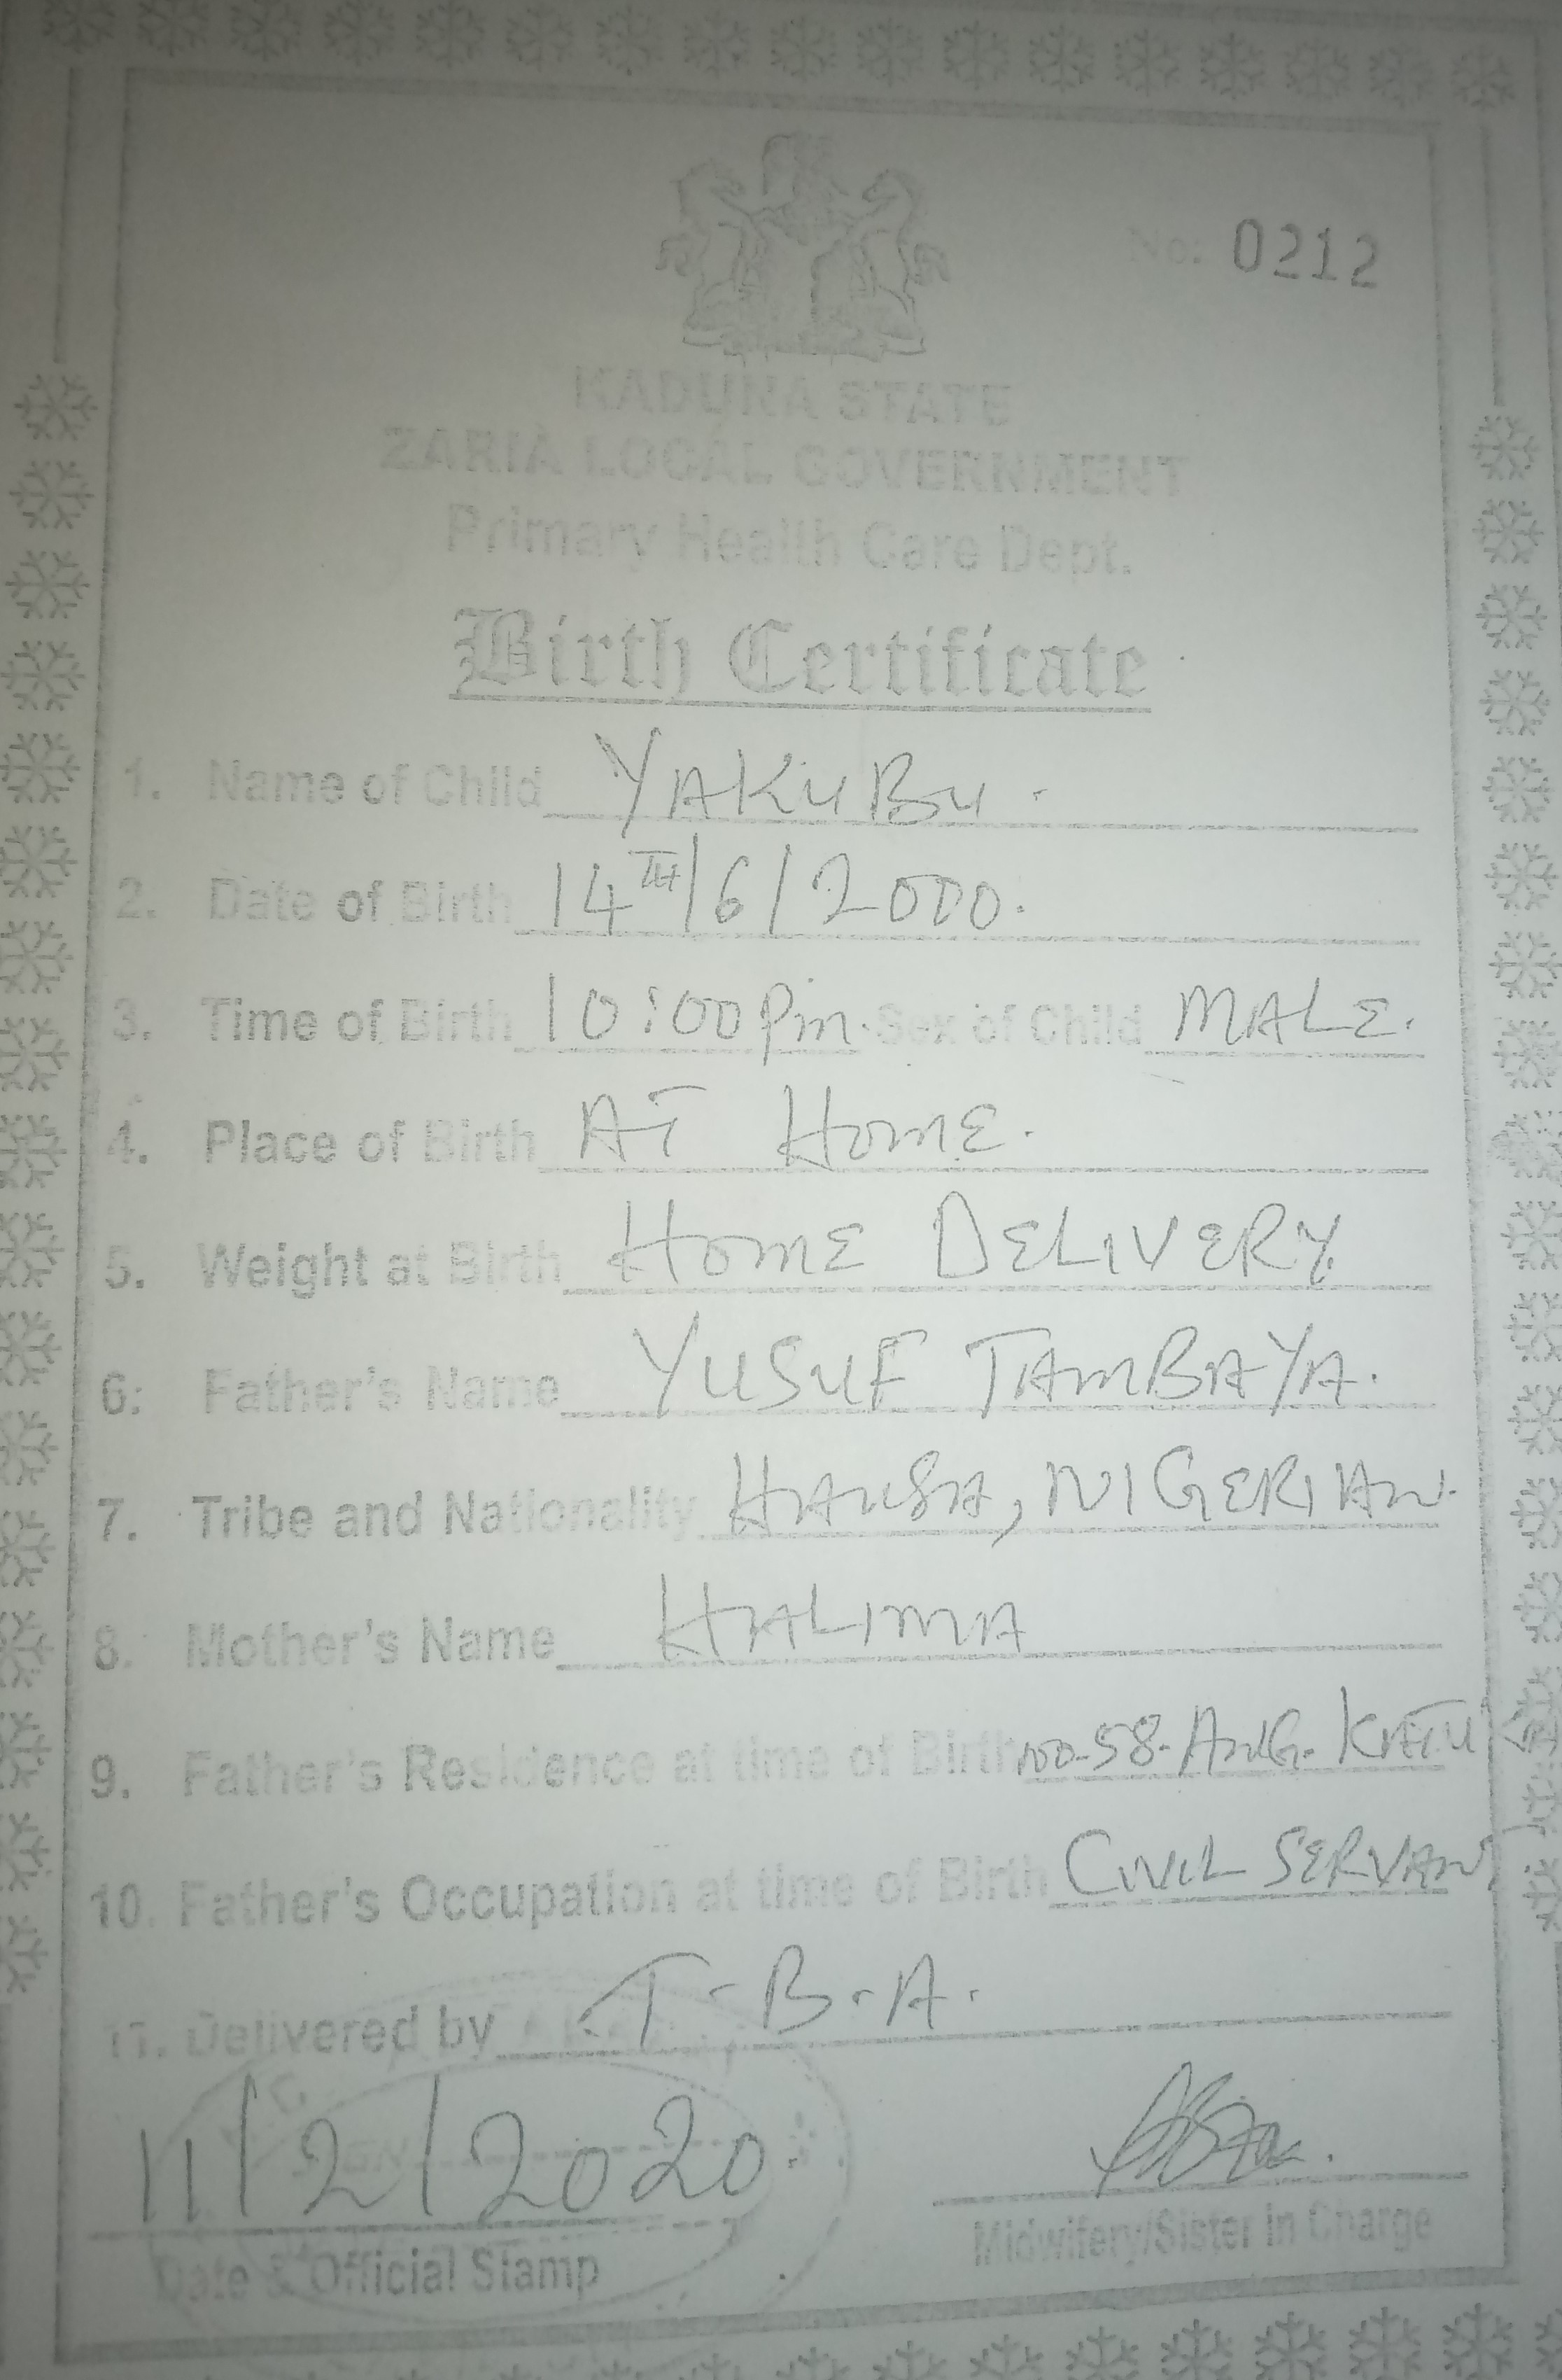 No: 0212
KADUNA STATE
ZARIA LOCAL GOVERNMENT
Primary Health Care Dept.
Birth Certificate
1. Name of Child YAKUBU.
2. Date of Birth 14TH/6/2000.
3. Time of Birth 10:00Pm. Sex of Child MALE.
4. Place of Birth AT HOME.
5. Weight at Birth HOME DELIVERY.
6: Father's Name YUSUF TAMBAYA.
7. Tribe and Nationality HAUSA, NIGERIAN.
8. Mother's Name HALIMA
9. Father's Residence at time of Birth 58. ANG.
10. Father's Occupation at time of Birth CIVIL SERVANT
11. Delivered by T.B.A.
11/2/2020.
Date & Official Stamp
Midwifery/Sister in Charge